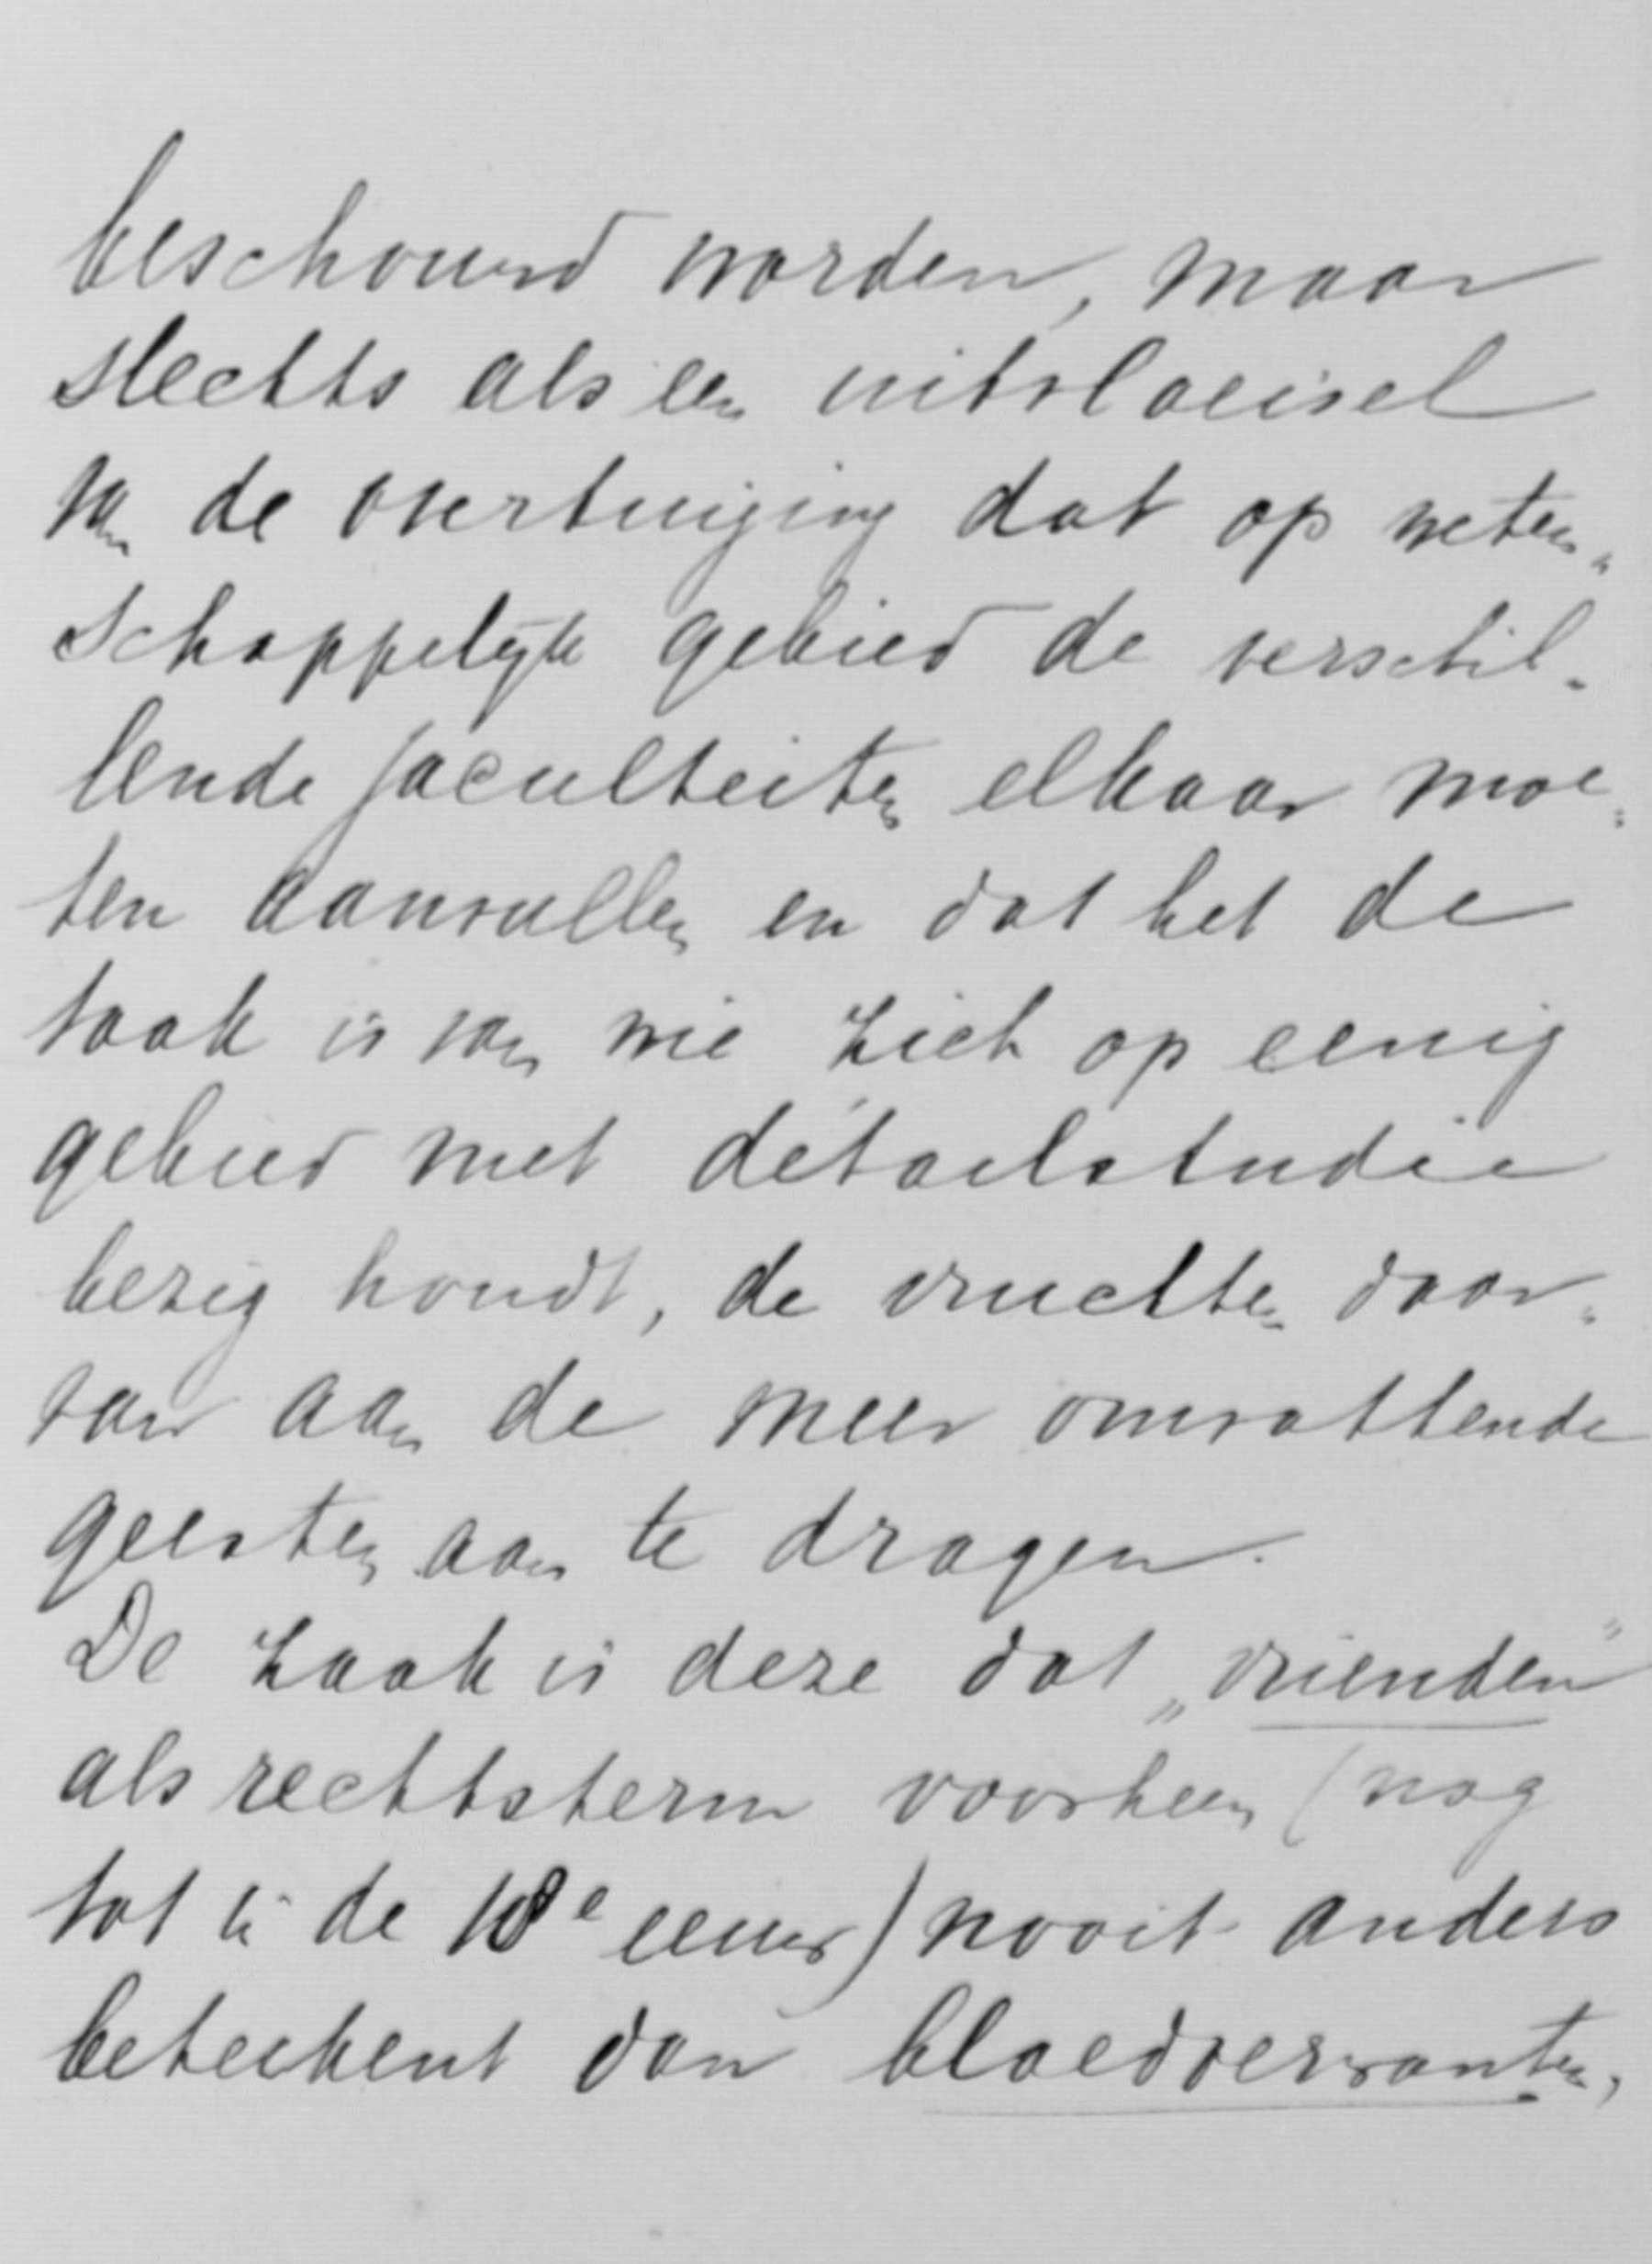 beschouwd worden, maar
slechts als een uitvloeisel
van de overtuiging dat op weten„
schappelijk gebied de verschil-
lende faculteiten elkaar moe„
ten aanvullen en dat het de
taak is van wie zich op eenig
gebied met détailstudie
bezig houdt, de vruchten daar„
van aan de meer omvattende
geesten aan te dragen.
De zaak is deze dat „vrienden"
als rechtsterm voorheen (nog
tot in de 18e eeuw) nooit anders
beteekent dan bloedverwanten,